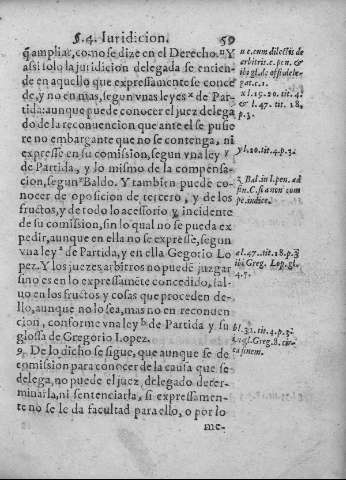 §. 4. Iuridicion. 59
q̃ ampliar, como se dize en el Derecho.ᵘ Y
assi solo la juridicion delegada se encien-
de en aquello que expressamente se conce
de, y no en mas, segun vnas leyes ˣ de Par-
tida: aunque puede conocer el juez delega
do de la reconuencion que ante el se pusie
re no embargante que no se contenga, ni
expresse en su comission, segun vna ley ʸ
de Partida, y lo mismo de la compensa-
cion, segun ᶻ Baldo. Y tambien puede co-
nocer de oposicion de tercero, y de los
fructos, y de todo lo accessorio y incidente
de su comission, sin lo qual no se pueda ex
pedir, aunque en ella no se expresse, segun
vna ley ᵃ de Partida, y en ella Gegorio Lo
pez. Y los juezes arbitros no puedẽ juzgar
sino es en lo expressamẽte concedido, sal-
uo en los fructos y cosas que proceden de-
llo, aunque no lo sea, mas no en reconuen
cion, conforme vna ley ᵇ de Partida y su
glossa de Gregorio Lopez.
9. De lo dicho se sigue, que aunque se de
comission para conocer de la causa que se
delega, no puede el juez delegado deter-
minarla, ni sentenciarla, si expressamen-
te no se le da facultad para ello, o por lo
me-
u c. cum dilectis de
arbitris. c. pen. &
ibi gl. de offi. dele-
gat. c. 1.
x l. 19. 20. tit. 4.
& l. 47. tit. 18.
p. 3.
y l. 20. tit. 4. p. 3.
z Bal. in l. pen. ad
fin. C. si a non com
pe. iudice.
a l. 47. tit. 18. p. 3
ibi Greg. Lop. gl.
4. 5.
b l. 32. tit. 4. p. 3.
gl. Greg. 8. cir-
ca finem.